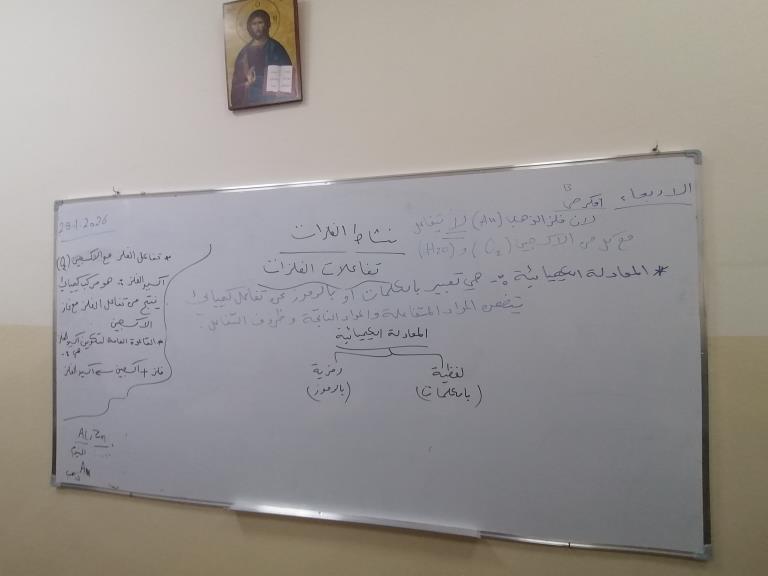 الاربعاء
28.1.2026
افكر ص
لان فلز الذهب (Au) لا يتفاعل
مع كل من الاكسجين (O2) و (H2O)
نشاط الفلزات
تفاعلات الفلزات
* المعادلة الكيميائية :- هي تعبير بالكلمات أو بالرموز عن تفاعل كيميائي
يتضمن المواد المتفاعلة والمواد الناتجة وظروف التفاعل
المعادلة الكيميائية
لفظية
(بالكلمات)
رمزية
(بالرموز)
* تفاعل الفلز مع الاكسجين (O2)
اكسيد الفلز :- هو مركب كيميائي
ينتج من تفاعل الفلز مع غاز
الاكسجين
* القاعدة العامة لتكوين اكسيد الفلز
هي :-
فلز + اكسجين → اكسيد الفلز
Al, Zn
Au
ذهب